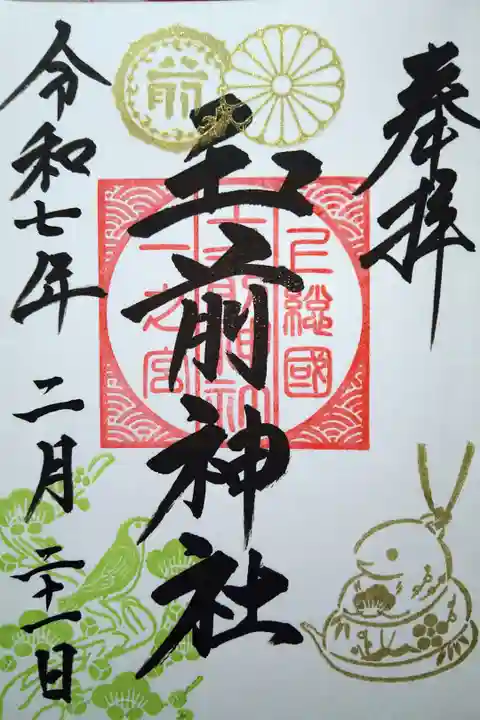 奉拝
上総國
玉前神社
一之宮
前
令和七年 二月 二十一日